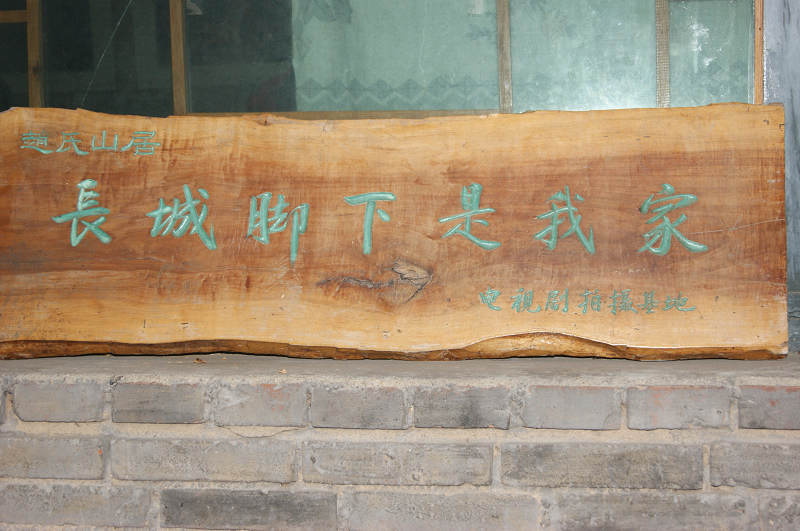 趙氏山居
長城脚下是我家
电视剧拍摄基地